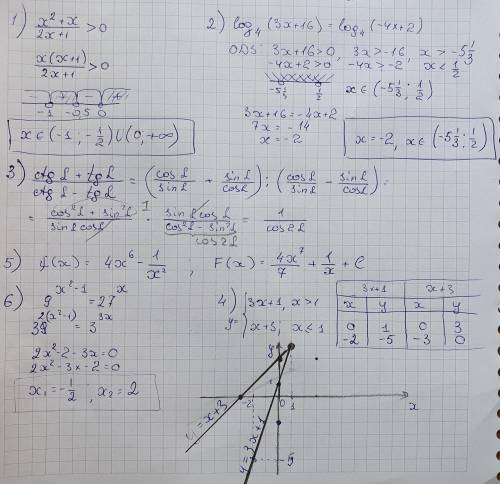 1) x²+x / 2x+1 > 0
x(x+1) / 2x+1 > 0
-1 -0,5 0
x ∈ (-1; -1/2) ∪ (0; +∞)
2) log₄(3x+16) = log₄(-4x+2)
ОДЗ: 3x+16>0, 3x>-16, x > -5 1/3
-4x+2>0, -4x>-2, x < 1/2
-5 1/3 1/2 x ∈ (-5 1/3; 1/2)
3x+16 = -4x+2
7x = -14
x = -2
x = -2, x ∈ (-5 1/3; 1/2)
3) ctg L + tg L / ctg L - tg L = (cos L / sin L + sin L / cos L) : (cos L / sin L - sin L / cos L) =
= cos²L + sin²L / sin L cos L · sin L cos L / cos²L - sin²L = 1 / cos 2L
1
cos 2L
5) f(x) = 4x⁶ - 1/x² , F(x) = 4x⁷/7 + 1/x + C
6) 9^(x²-1) = 27^x
3^(2(x²-1)) = 3^(3x)
2x²-2-3x=0
2x²-3x-2=0
x₁ = -1/2 ; x₂ = 2
4) y = { 3x+1, x>1
x+3, x ≤ 1
3x+1 x+3
x y x y
0 1 0 3
-2 -5 -3 0
y
1
-2 0 1 x
y = x+3
y = 3x+1
-5